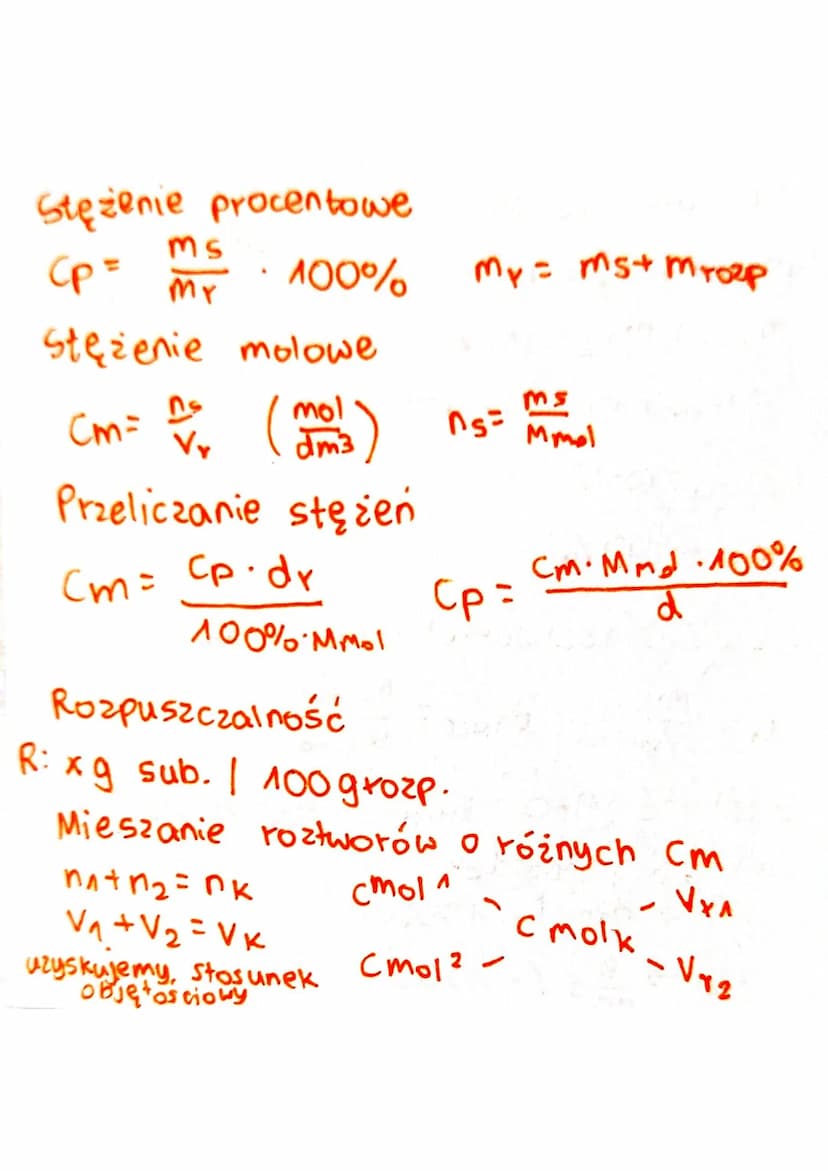 Stężenie procentowe
Cp = ms/mr · 100% mr = ms + mrozp
Stężenie molowe
Cm = ns/Vr (mol/dm3) ns = ms/Mmol
Przeliczanie stężeń
Cm = Cp · dr / 100% · Mmol Cp = Cm · Mmol · 100% / d
Rozpuszczalność
R: x g sub. | 100 g rozp.
Mieszanie roztworów o różnych Cm
n1 + n2 = nk Cmol1 - Vr1
V1 + V2 = Vk Cmolk
uzyskujemy, stosunek Cmol2 - Vr2
objętościowy